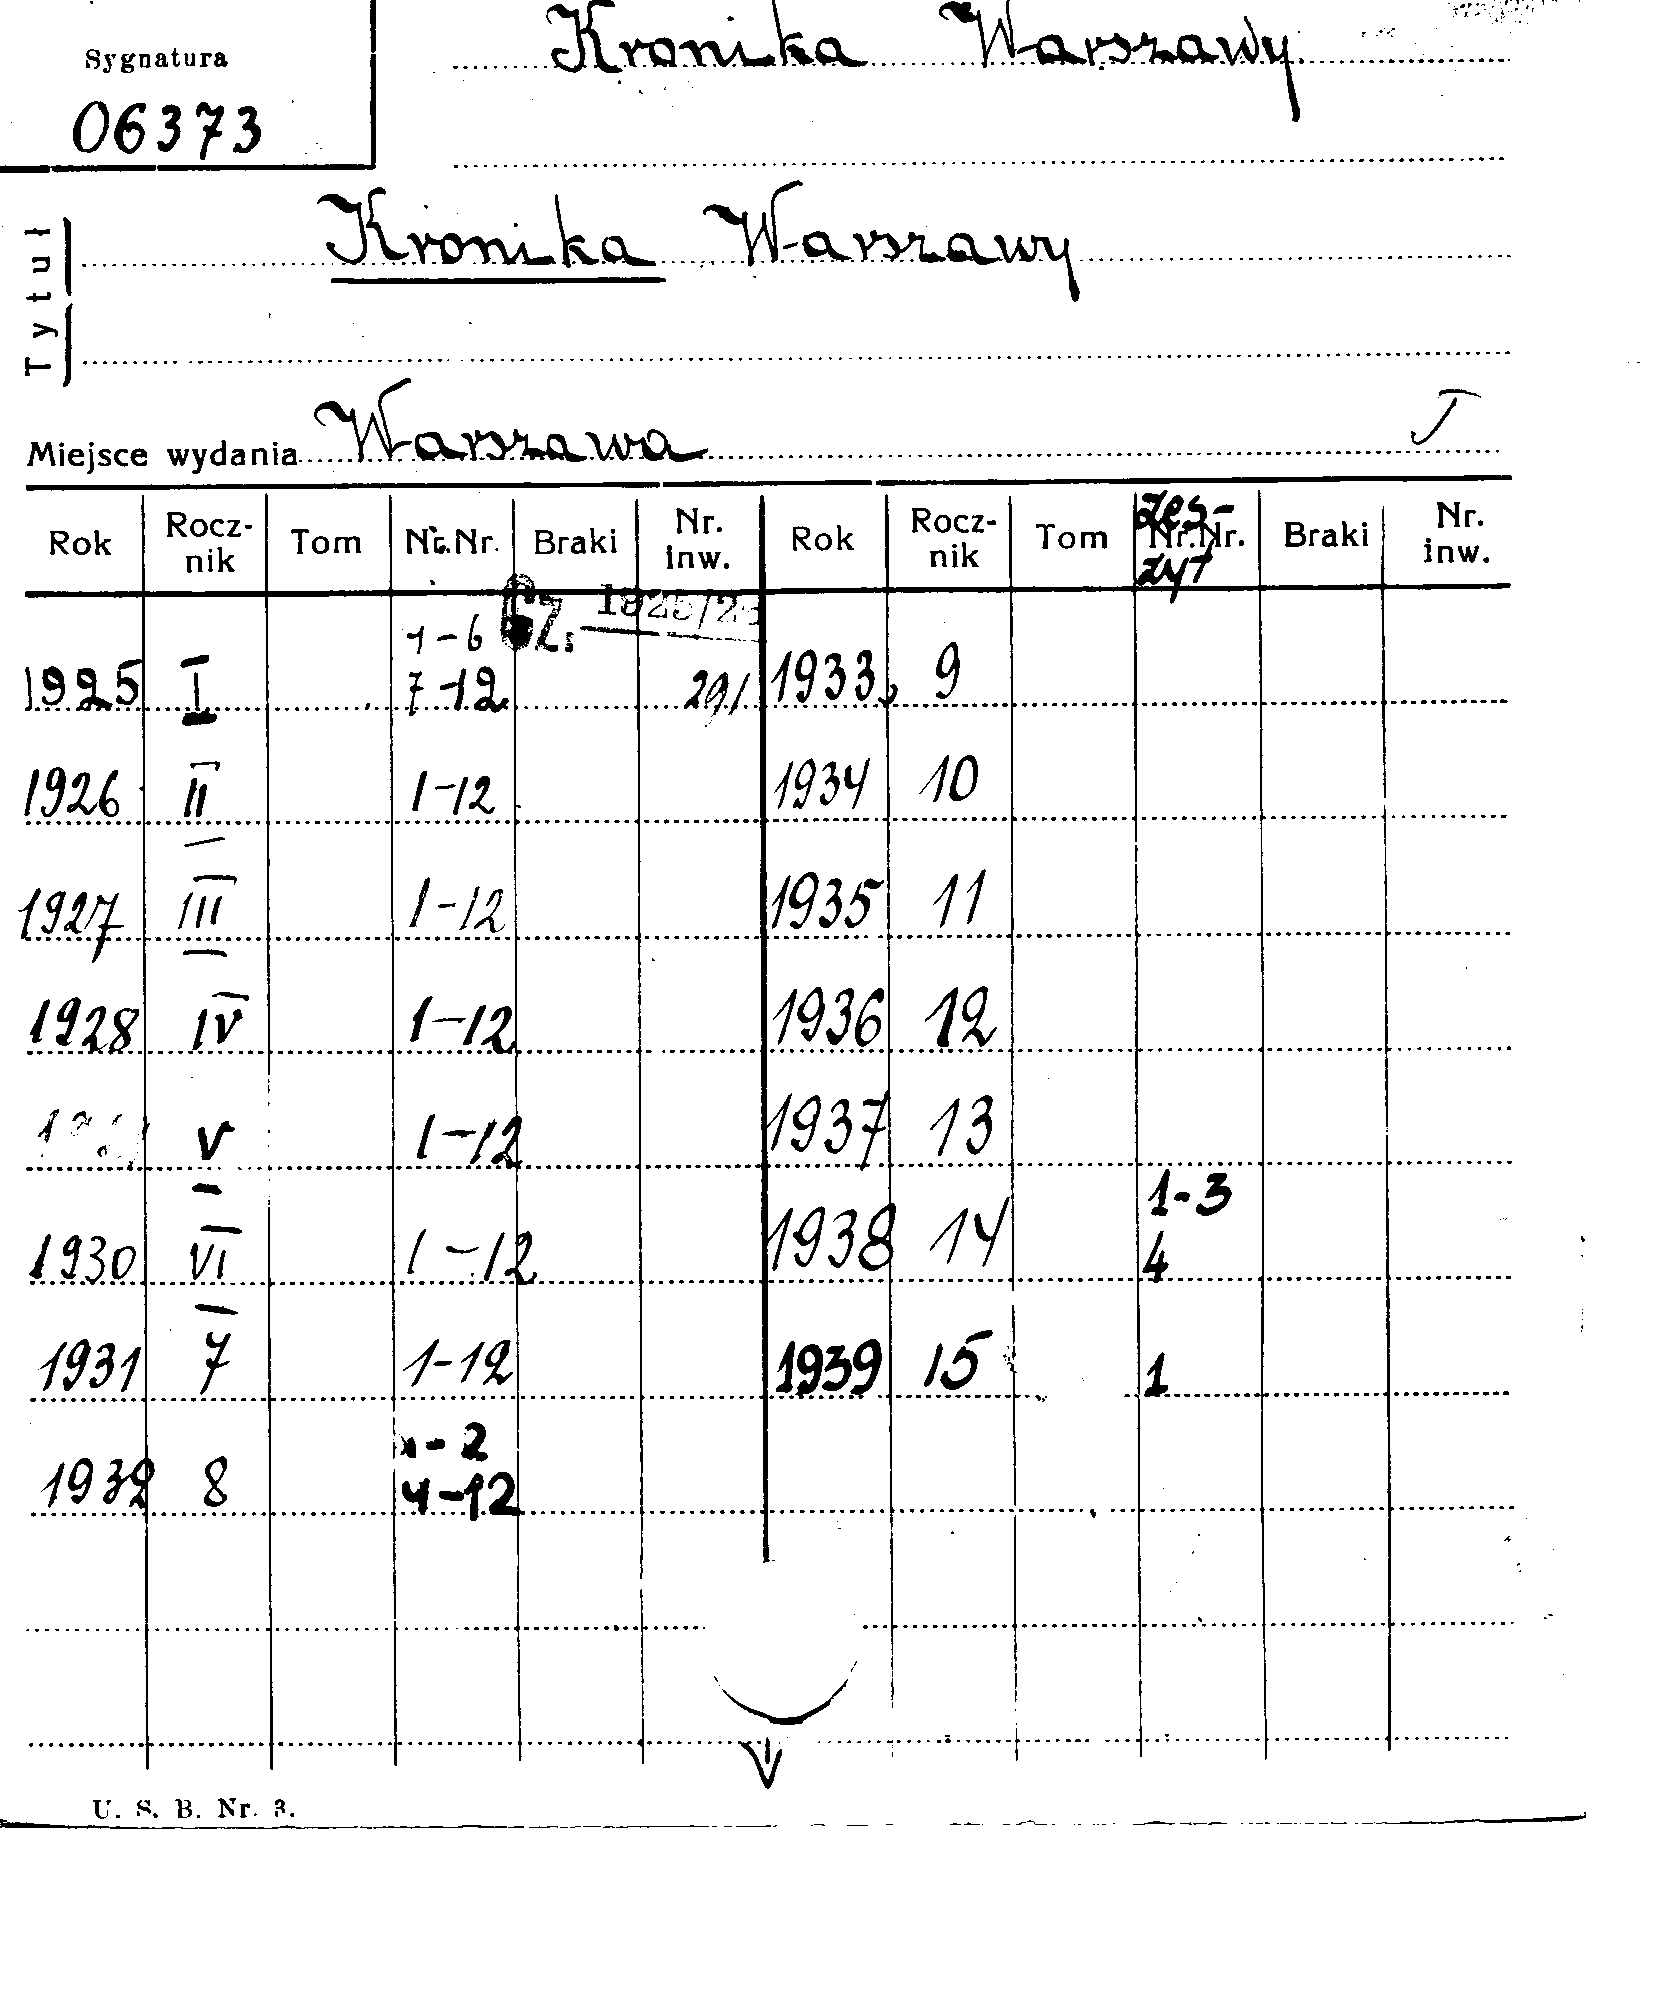 Kronika Warszawy
Sygnatura
06373
Tytuł
Kronika Warszawy
Miejsce wydania Warszawa
Rok Rocz-nik Tom Nr.Nr. Braki Nr. inw. Rok Rocz-nik Tom Nr.Nr. Zes-zyt Braki Nr. inw.
1-6 Cz. 1925/26
1925 I 7-12 291 1933 9
1926 II 1-12 1934 10
1927 III 1-12 1935 11
1928 IV 1-12 1936 12
V 1-12 1937 13
1-3
1930 VI 1-12 1938 14 4
1931 7 1-12 1939 15 1
1-2
1932 8 4-12
U. S. B. Nr. 3.